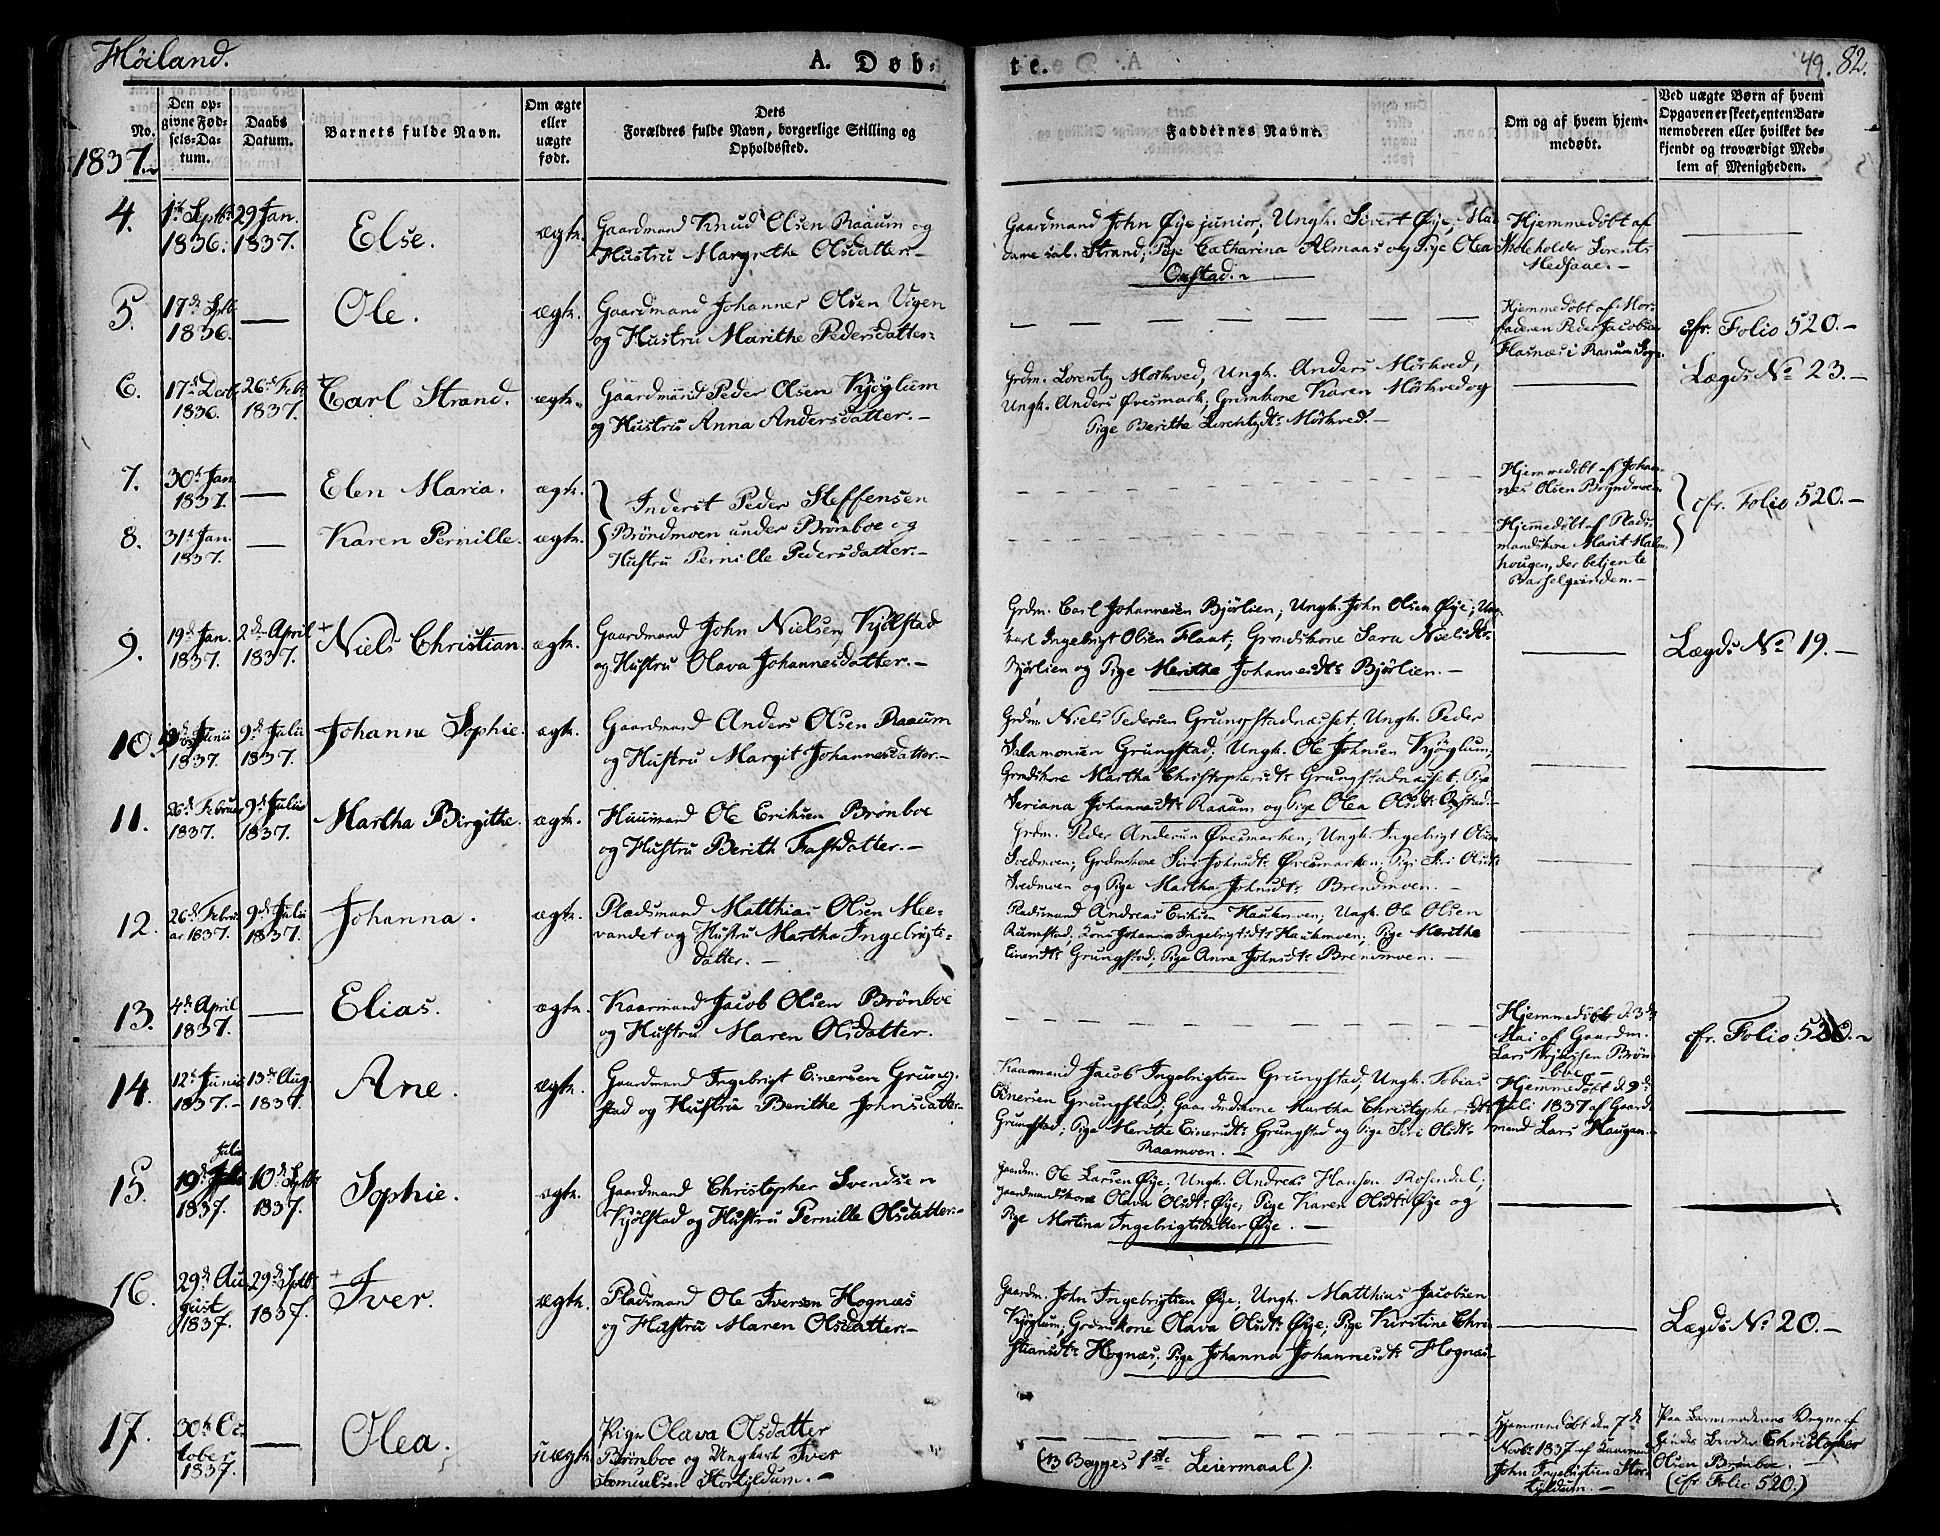 Høiland.
A. Døb-
te.
49. 82.
No.
Den op-
givne Fød-
sels-Da-
tum.
Daabs
Datum.
Barnets fulde Navn.
Om ægte
eller
uægte
født.
Dets
Forældres fulde Navn, borgerlige Stilling og
Opholdssted.
Faddernes Navne.
Om og af hvem hjem-
medøbt.
Ved uægte Børn af hvem
Opgaven er skeet, enten Bar-
nemoderen eller hvilket be-
kjendt og troværdigt Med-
lem af Menigheden.
1837.
4.
1ste Septbr.
1836.
29 Jan.
1837.
Else.
ægte.
Gaardmand Knud Olsen Raaum og
Hustru Margrethe Olsdatter.
Gaardmand John Øye junior, Ungk. Sivert Øye, Ma-
dame sal. Strand, Pige Catharina Almaas og Pige Olea
Oxstad.
Hjemmedøbt af
Skoleholder Lorents
Medjaae.
5.
17de Septbr.
1836.
Ole.
ægte.
Gaardmand Johannes Olsen Vigen
og Hustru Marithe Pedersdatter.
Hjemmedøbt af Mor-
faderen Peder Jacobsen
Flasnæs i Ranums Sogn.
cfr. Folio 520.
6.
17de Decbr.
1836.
26de Febr.
1837.
Carl Strand.
ægte.
Gaardmand Peder Olsen Kjøglum
og Hustru Anna Andersdatter.
Grdm. Lorentz Mørkved, Ungk. Anders Mørkved,
Ungk. Anders Øvesmark, Grdmkone Karen Mørkved og
Pige Berithe Lorentzdtr Mørkved.
Lægds No 23.
7.
30te Jan.
1837.
Elen Maria.
ægte.
Inderst Peder Steffensen
Hjemmedøbt af Johan-
nes Olsen Bryndmoen.
cfr. Folio 520.
8.
31te Jan.
1837.
Karen Pernille.
ægte.
Brøndmoen under Brønboe og
Hustru Pernille Pedersdatter.
Hjemmedøbt af Plads-
mandskone Marit Malm-
hougen, der betjente
Barselqvinden.
9.
19de Jan.
1837.
2den April
1837.
Niels Christian.
ægte.
Gaardmand John Nielsen Kjølstad
og Hustru Olava Johannesdatter.
Grdm. Carl Johannesen Bjørlien, Ungk. John Olsen Øye, Ung-
karl Ingebrigt Olsen Flaat, Grmdskone Sara Nielsdtr
Bjørlien og Pige Merithe Johannesdtr Bjørlien.
Lægds No 19.
10.
Junii
1837.
9de Julii
1837.
Johanne Sophie.
ægte.
Gaardmand Anders Olsen Raaum
og Hustru Margit Johannesdatter.
Grdm. Niels Pedersen Grungstadnæsset, Ungk. Peder
Salamonsen Grungstad, Ungk. Ole Johnsen Kjøglum,
Grmdskone Martha Christophersdtr Grungstadnæsset, Pige
Seriana Johannesdtr Raaum og Pige Olea Olsdtr Oxstad.
11.
26de Februar
1837.
9de Julii
1837.
Martha Birgithe.
ægte.
Huusmand Ole Eriksen Brønboe
og Hustru Berith Fastdatter.
Grdm. Peder Andersen Øvesmarken, Ungk. Ingebrigt Olsen
Svedmoen, Grdmskone Siri Johnsdtr Øvesmarken, Pige Siri Olsdtr
Svedmoen og Pige Martha Johnsdtr Brendmoen.
12.
26de Febru-
ar 1837.
9de Julii
1837.
Johanna.
ægte.
Pladsmand Matthias Olsen Mee-
vandet og Hustru Martha Ingebrigts-
datter.
Pladsmand Andreas Eriksen Haukmoen, Ungk. Ole Olsen
Rumstad, Kone Johanna Ingebrigtsdtr Haukmoen, Pige Merithe
Einersdtr Grungstad, Pige Anne Johnsdtr Brendmoen.
13.
4de April
1837.
Elias.
ægte.
Kaarmand Jacob Olsen Brønboe
og Hustru Maren Olsdatter.
Hjemmedøbt d. 3de
Mai af Gaardm.
Lars Brøn-
boe.
cfr. Folio 530.
14.
12te Junii
1837.
13de Aug.
1837.
Ane.
ægte.
Gaardmand Ingebrigt Einersen Grung-
stad og Hustru Berithe Johnsdatter.
Kaarmand Jacob Ingebrigtsen Grungstad, Ungk. Tobias
Einersen Grungstad, Gaardmdskone Martha Christophersdtr
Grungstad, Pige Merithe Einersdtr Grungstad og Pige Siri Olsdtr
Raamoen.
Hjemmedøbt d. 9de
Juli 1837 af Gaard-
mand Lars Haugan.
15.
Julii
19de Juli
1837.
10de Septbr.
1837.
Sophie.
ægte.
Gaardmand Christopher Svendsen
Kjølstad og Hustru Pernille Olsdatter.
Gaardm. Ole Larsen Øye, Ungk. Andreas Hansen Rosendal,
Gaardmandskone Olava Olsdtr Øye, Pige Karen Olsdtr Øye og
Pige Martina Ingebrigtsdatter Øye.
16.
29de Au-
gust
1837.
29de Septbr.
1837.
Iver.
ægte.
Pladsmand Ole Iversen Hognæs
og Hustru Maren Olsdatter.
Gaardm. John Ingebrigtsen Øye, Ungk. Matthias Jacobsen
Kjøglum, Grdmskone Olava Olsdtr Øye, Pige Kirstine Chri-
stiansdtr Hognæs, Pige Johanna Johannesdtr Hognæs.
Lægds No 20.
17.
30te Oc-
tober
1837.
Olea.
uægte.
Pige Olava Olsdatter
Brønboe og Ungkarl Iver
Samuelsen Storlyldum.
(NB Begges 1ste Leiermaal).
Hjemmedøbt den 7de
Novbr. 1837 af Kaarmand
John Ingebrigtsen Stor-
lyldum.
Paa Barnemoderens Vegne af
hendes Broder Christopher
Olsen Brønboe.
(cfr Folio 520.)